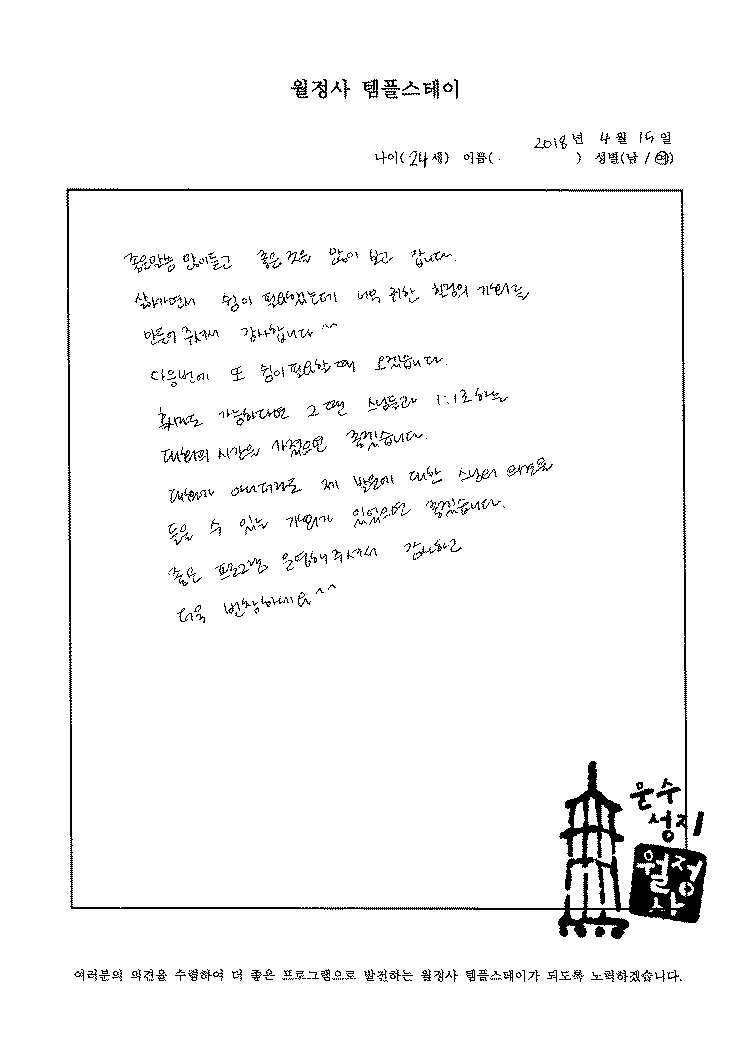 월정사 템플스테이
2018년 4월 15일
나이(24세) 이름( ) 성별(남/여)
좋은말씀 많이듣고 좋은 것을 많이 보고 갑니다.
살아가면서 쉼이 필요했는데 너무 귀한 환경의 기회를
만들어 주셔서 감사합니다^^
다음번에 또 쉼이 필요할 때 오겠습니다.
혹시라도 가능하다면 그 땐 스님들과 1:1로 하는
대화의 시간을 가졌으면 좋겠습니다.
대화가 아니더라도 제 발문에 대한 스님의 의견을
들을 수 있는 기회가 있었으면 좋겠습니다.
좋은 프로그램 운영해주셔서 감사하고
더욱 번창하세요^^
문수
성지
월정
사
여러분의 의견을 수렴하여 더 좋은 프로그램으로 발전하는 월정사 템플스테이가 되도록 노력하겠습니다.